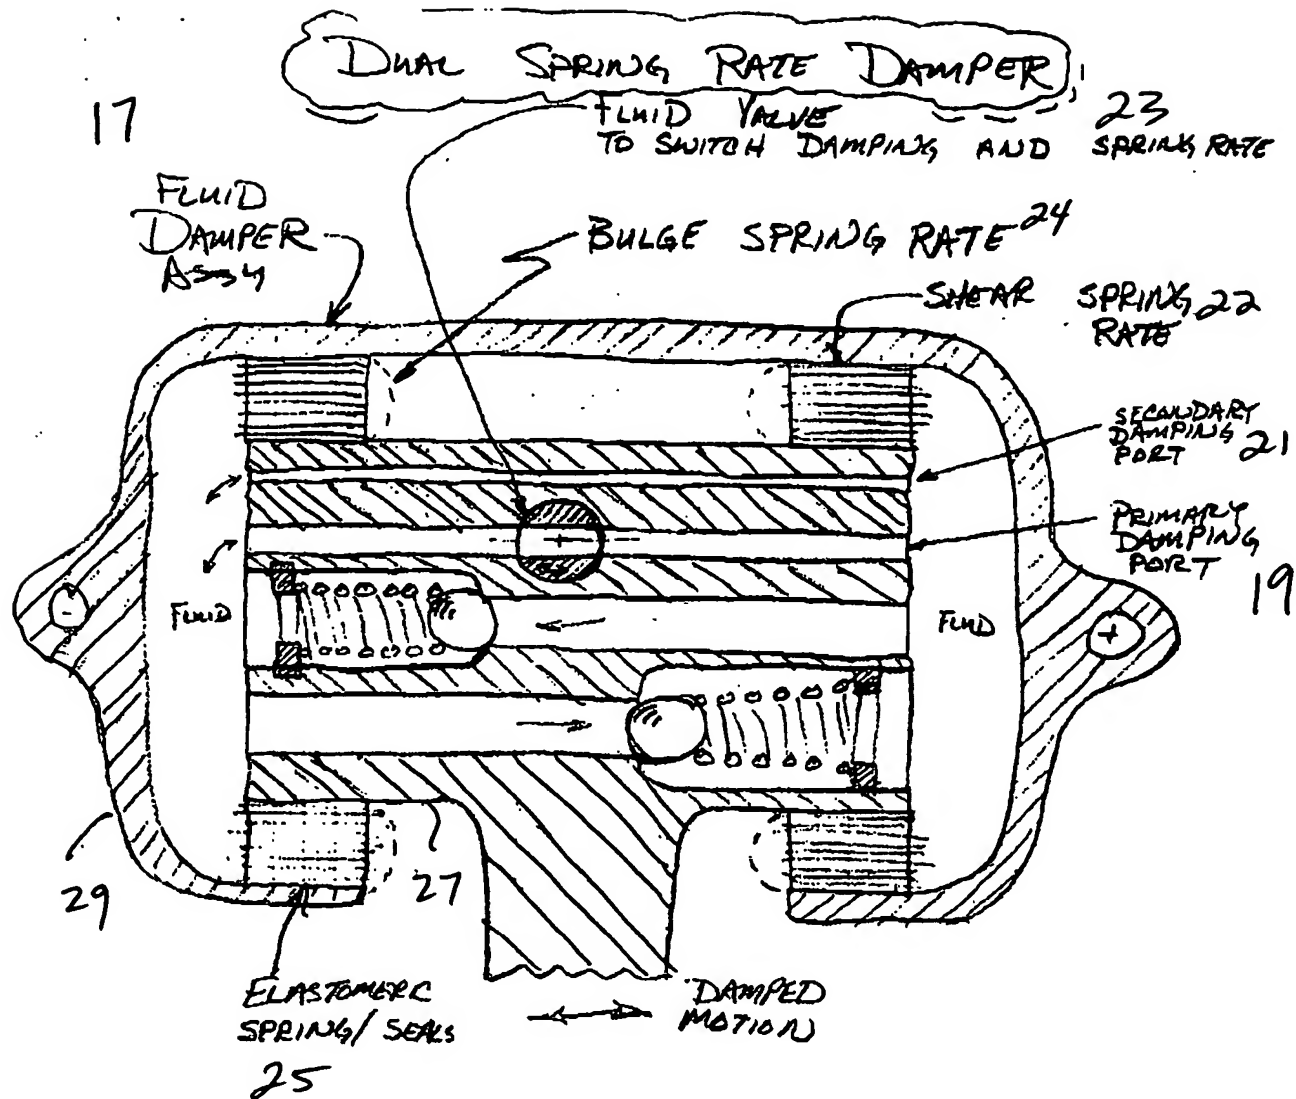 DUAL SPRING RATE DAMPER
17
FLUID VALVE 23
TO SWITCH DAMPING AND SPRING RATE
FLUID
DAMPER
ASSY
BULGE SPRING RATE 24
SHEAR SPRING 22
RATE
SECONDARY
DAMPING
PORT 21
PRIMARY
DAMPING
PORT
19
FLUID
FLUID
29
27
ELASTOMERIC
SPRING/SEALS
25
DAMPED
MOTION